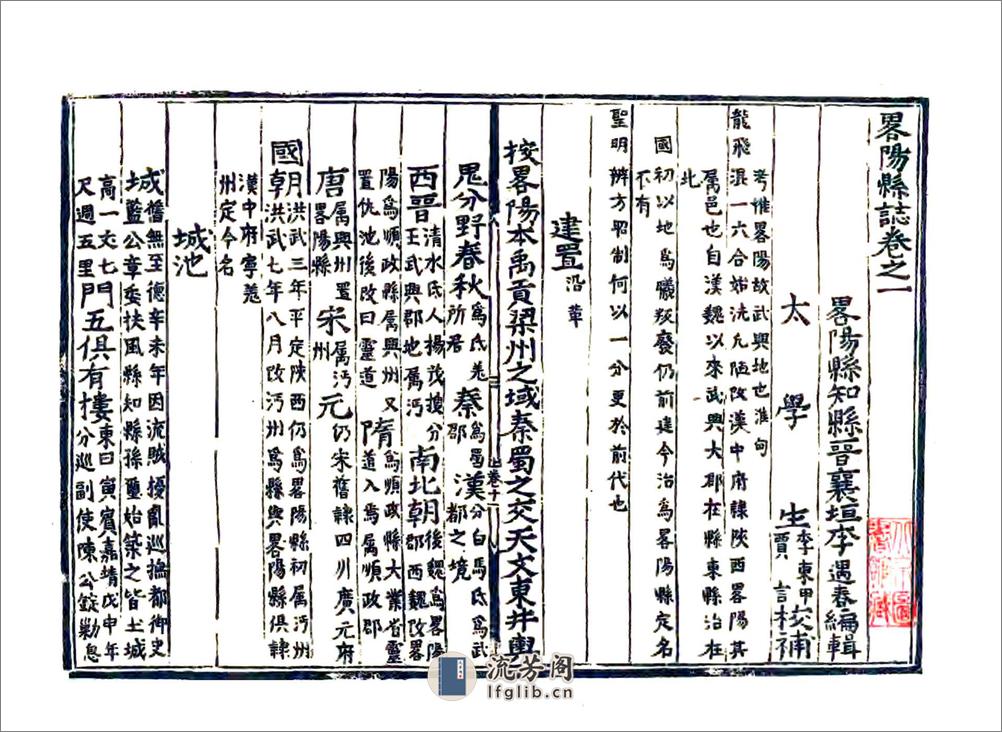 畧陽縣誌卷之一
畧陽縣知縣晉襄垣李遇春編輯
太學生李東甲校補
賈言
考惟畧陽故武興地也淮句
龍飛混一六合姑洗九陌改漢中府隸陝西畧陽其
属邑也自漢魏以來武興大郡在縣東縣治在
此
國初以地為曦叛廢仍前建今治為畧陽縣定名
不有
聖明辨方昭制何以一分更於前代也
建置沿革
按畧陽本禹貢梁州之域秦蜀之交天文東井輿
鬼分野春秋為氐羌所居秦為蜀郡漢分白馬氐為武都之境
西晉清水氐人楊茂搜分王武興郡地属沔南北朝後魏為畧陽郡西魏改
陽為順政縣属興州又為順政縣大業省靈
置仇池後改曰靈道隋道入焉属順政郡
唐属興州置畧陽縣宋属沔州元仍宋舊隸四川廣元府
國朝洪武三年平定陝西仍為畧陽縣初属沔州
洪武七年八月改沔州為縣與畧陽縣俱隸
漢中府寧羌
州定今名
城池
城舊無至德辛未年因流賊擾亂巡撫都御史
藍公章委扶風縣知縣孫璽始築之皆土城
高一丈七
尺週五里門五俱有樓東曰寅賓嘉靖戊申年
分巡副使陳公錠勒息
卷十一
流芳阁
lfglib.cn